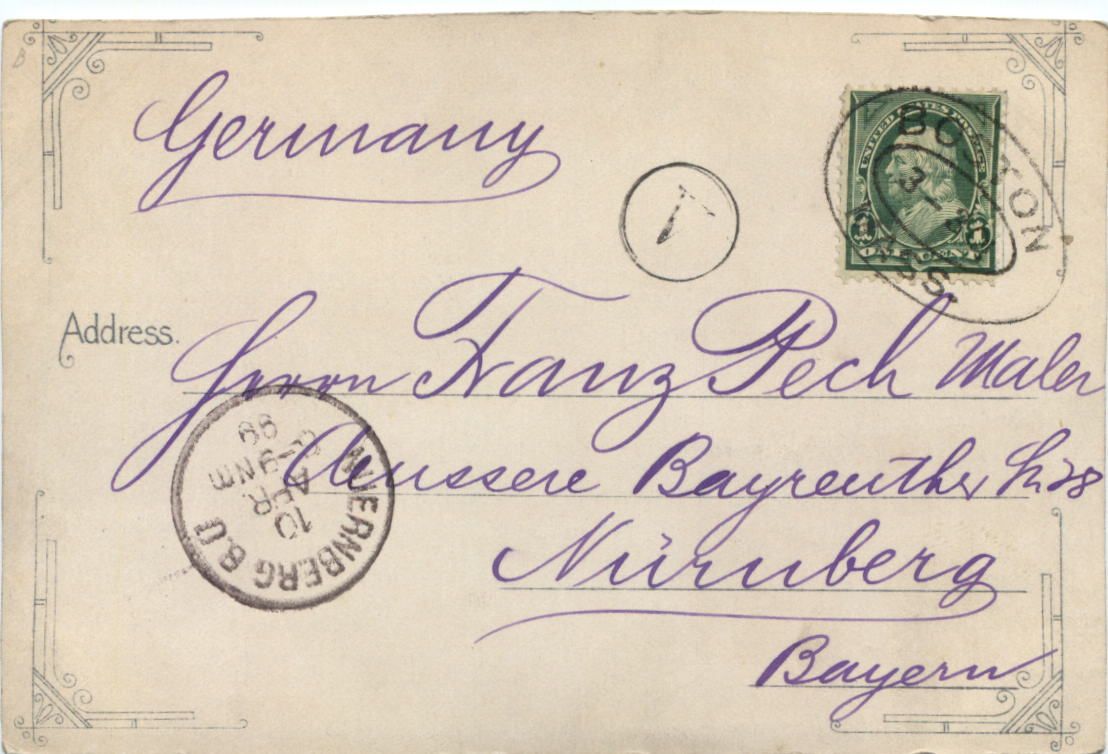 Germany
UNITED STATES POSTAGE
1 1
ONE CENT
BOSTON
3 -
MASS.
1
Address.
Herrn Franz Pech Maler
Aeussere Bayreuther
Nürnberg
Bayern
NUERNBERG 8.U
10
APR.
8-9NM
99